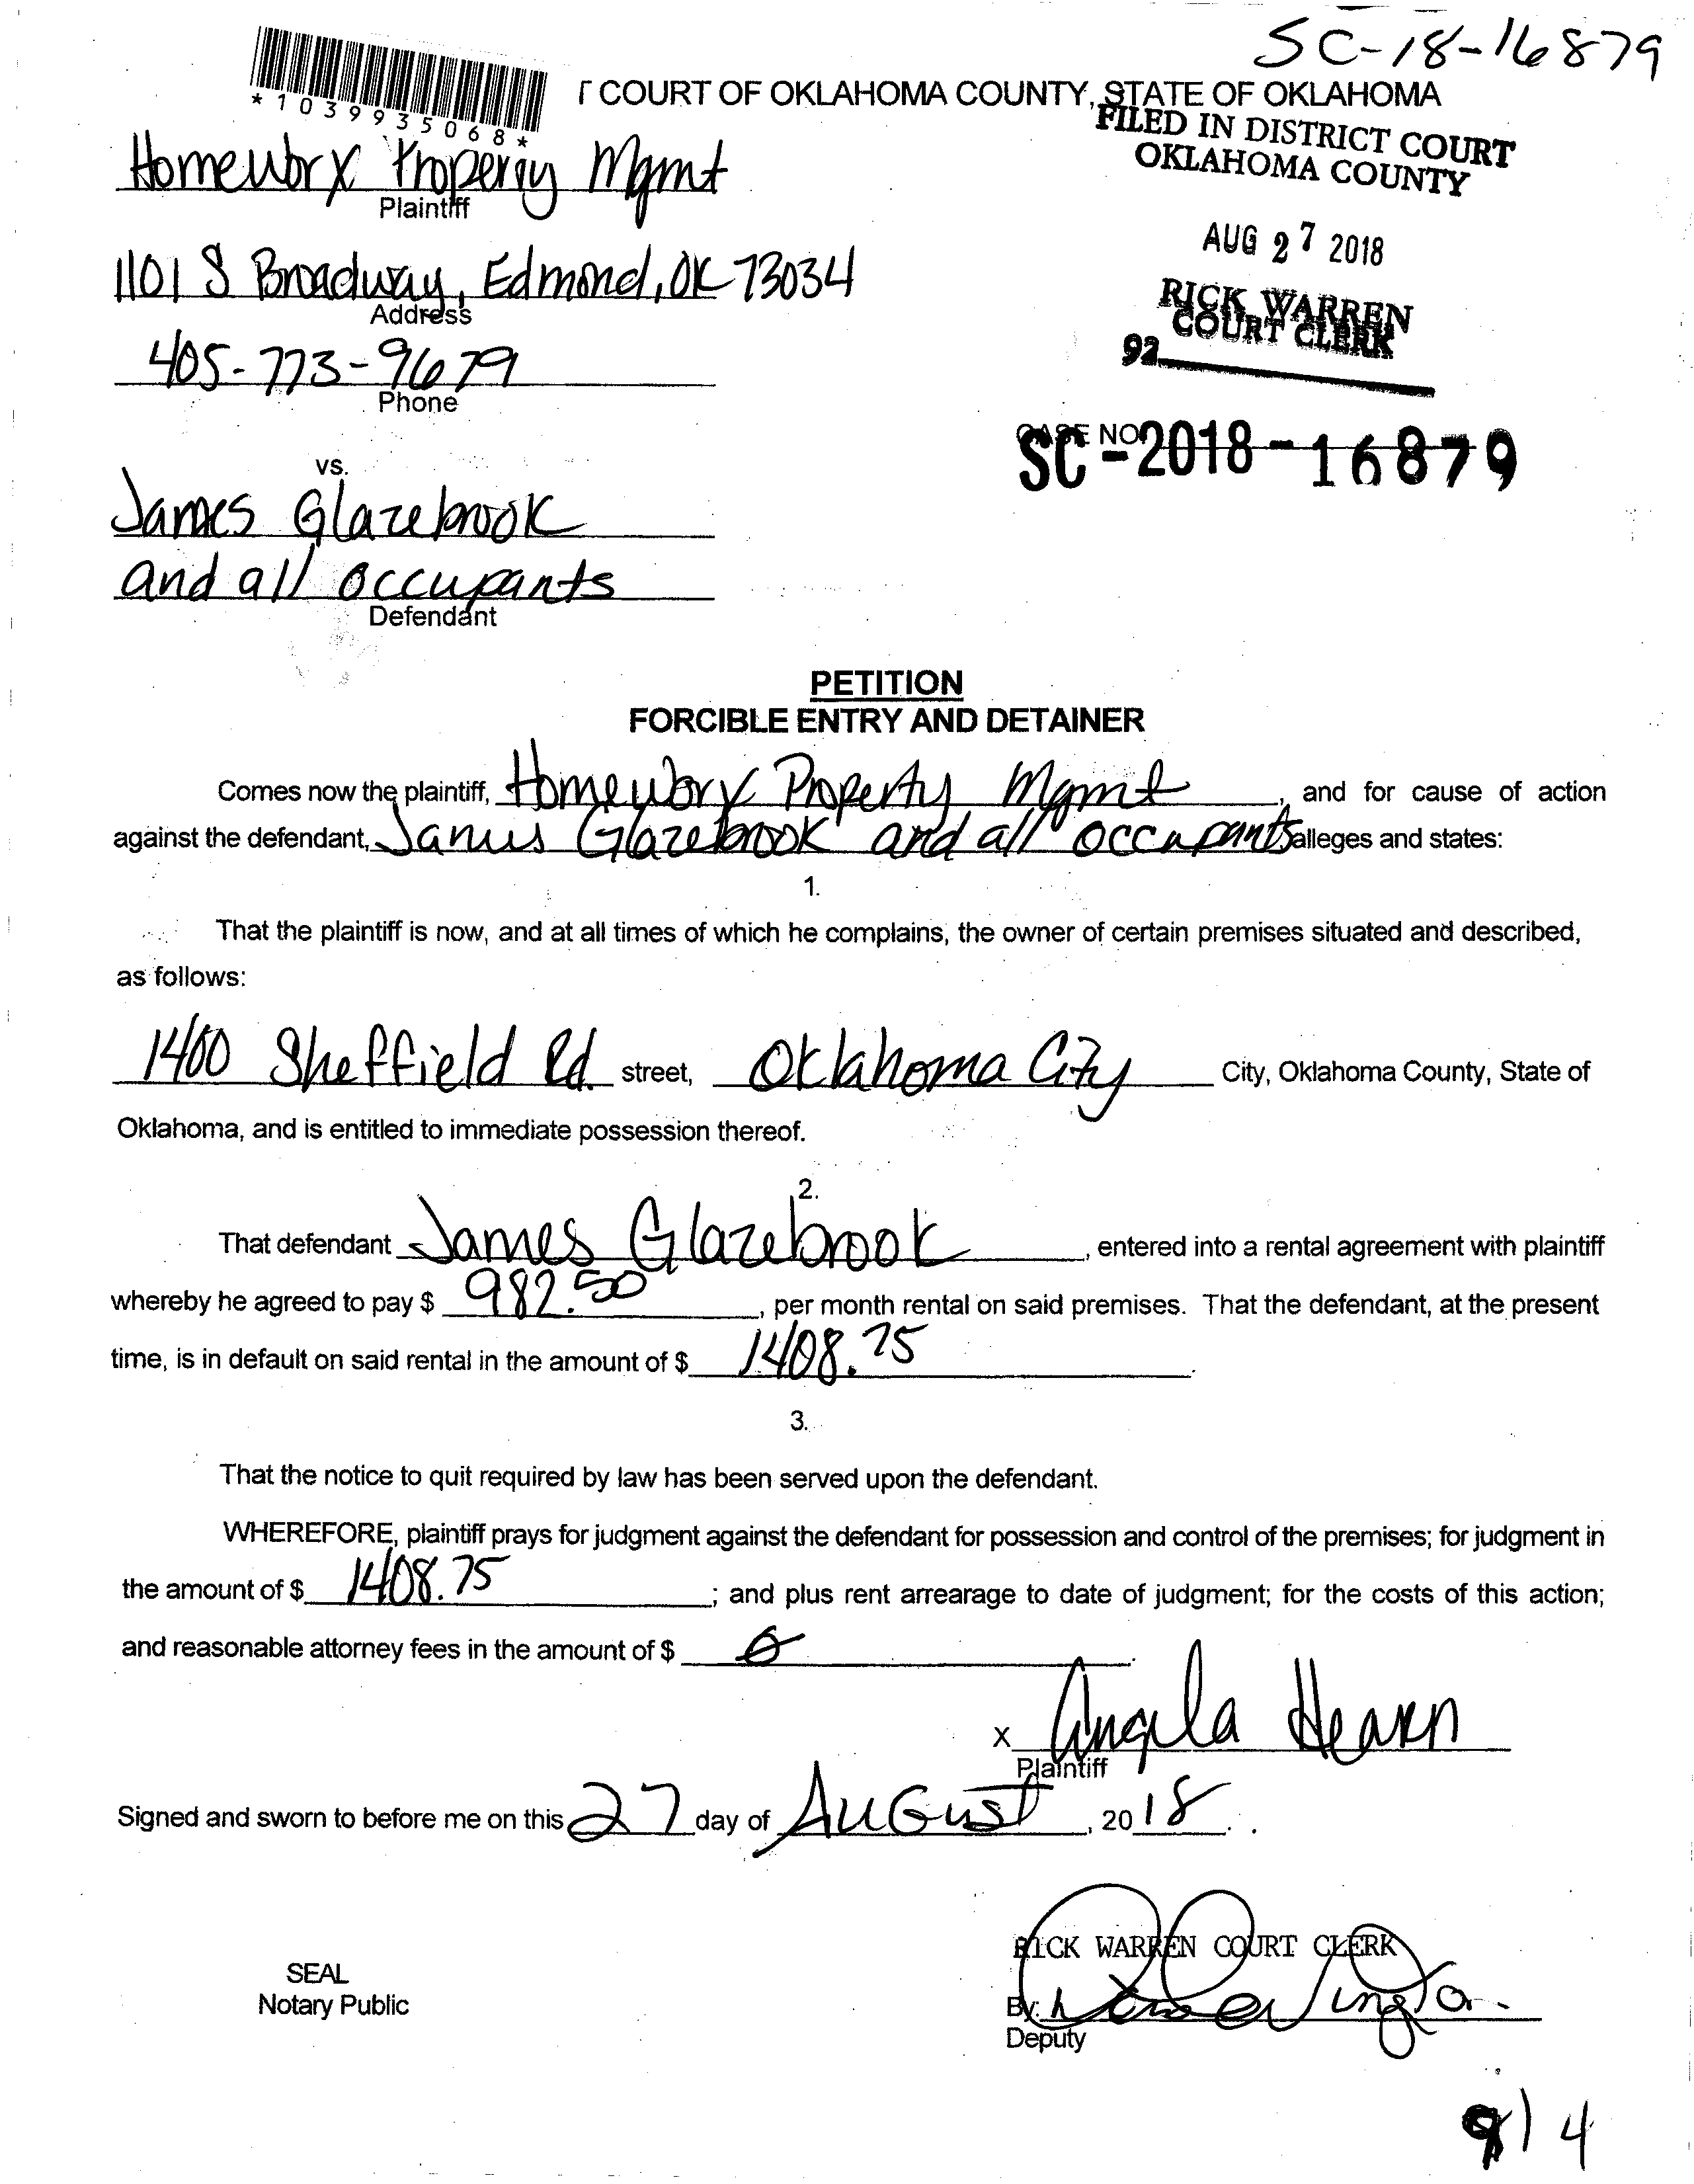 SC-18-16879
*1039935068*
T COURT OF OKLAHOMA COUNTY, STATE OF OKLAHOMA
FILED IN DISTRICT COURT
OKLAHOMA COUNTY
Homeworx Property Mgmt
Plaintiff
AUG 27 2018
1101 S Broadway, Edmond, OK 73034
Address
RICK WARREN
COURT CLERK
92
405-773-9679
Phone
CASE NO
SC-2018-16879
vs.
James Glazebrook
and all occupants
Defendant
PETITION
FORCIBLE ENTRY AND DETAINER
Comes now the plaintiff, Homeworx Property Mgmt, and for cause of action
against the defendant, James Glazebrook and all occupants alleges and states:
1.
That the plaintiff is now, and at all times of which he complains, the owner of certain premises situated and described,
as follows:
1400 Sheffield Rd. street, Oklahoma City City, Oklahoma County, State of
Oklahoma, and is entitled to immediate possession thereof.
2.
That defendant James Glazebrook, entered into a rental agreement with plaintiff
whereby he agreed to pay $ 982.50, per month rental on said premises. That the defendant, at the present
time, is in default on said rental in the amount of $ 1408.75.
3.
That the notice to quit required by law has been served upon the defendant.
WHEREFORE, plaintiff prays for judgment against the defendant for possession and control of the premises; for judgment in
the amount of $ 1408.75; and plus rent arrearage to date of judgment; for the costs of this action;
and reasonable attorney fees in the amount of $ 0.
X Angela Hearn
Plaintiff
Signed and sworn to before me on this 27 day of August, 2018.
RICK WARREN COURT CLERK
SEAL
Notary Public
By:
Deputy
9/4